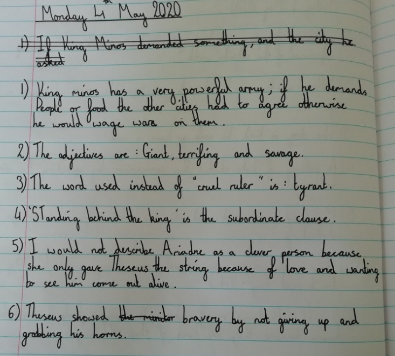 Monday 4th May 2020
1) If King Minos demanded something, and the city he
asked
1) King minos has a very powerful army; if he demands
People or food the other cities had to agree otherwise
he would wage wars on them.
2) The adjectives are : Giant, terrifing and savage.
3) The word used instead of "cruel ruler" is : tyrant.
4) 'STanding behind the king' is the subordinate clause.
5) I would not describe Ariadne as a clever person because
she only gave Theseus the string because of love and wanting
to see him come out alive.
6) Theseus showed the minitor bravery by not giving up and
grabbing his horns.